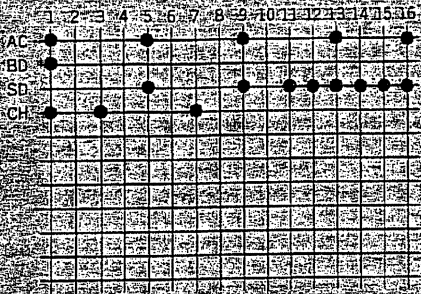 1 2 3 4 5 6 7 8 9 10 11 12 13 14 15 16
AC
BD
SD
CH